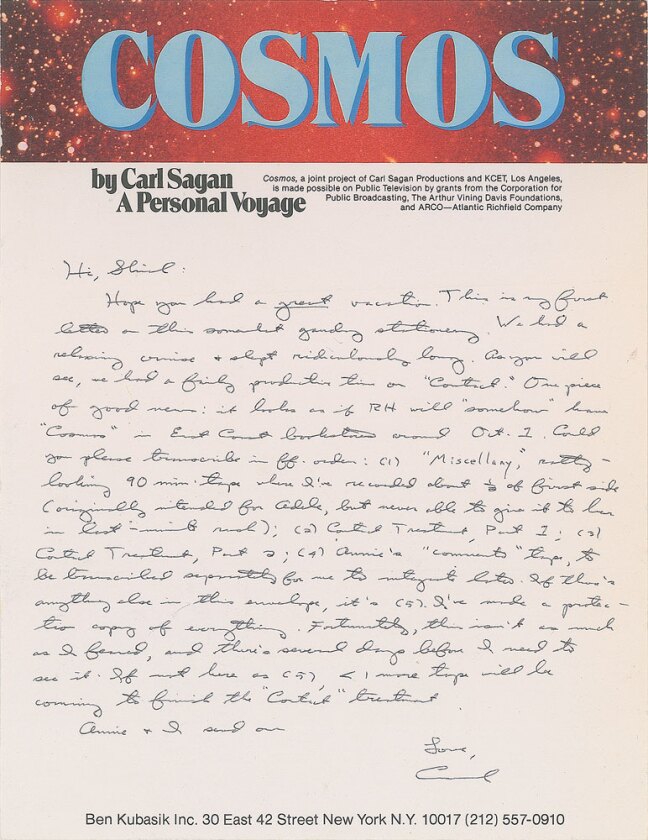 COSMOS
by Carl Sagan
A Personal Voyage
Cosmos, a joint project of Carl Sagan Productions and KCET, Los Angeles,
is made possible on Public Television by grants from the Corporation for
Public Broadcasting, The Arthur Vining Davis Foundations,
and ARCO—Atlantic Richfield Company
Hi, Shirl:
Hope you had a great vacation. This is my first
letter on this somewhat gaudy stationery. We had a
relaxing cruise & slept ridiculously long. As you will
see, we had a fairly productive time on "Contact." One piece
of good news: it looks as if RH will "somehow" have
"Cosmos" in East Coast bookstores around Oct. 1. Could
you please transcribe in ff. order: (1) "Miscellany," ratty-
looking 90 min. tape where I've recorded about ⅓ of first side
(originally intended for Adele, but never able to give it to her
in last-minute rush); (2) Contact Treatment, Part 1; (3)
Contact Treatment, Part 2; (4) Annie's "comments" tape, to
be transcribed separately for me to integrate later. If there's
anything else in this envelope, it's (5). I've made a protec-
tion copy of everything. Fortunately, this isn't as much
as I feared, and there's several days before I need to
see it. If not here as (5), ≤ 1 more tape will be
coming to finish the "Contact" treatment.
Annie & I send our
Love,
Carl
Ben Kubasik Inc. 30 East 42 Street New York N.Y. 10017 (212) 557-0910